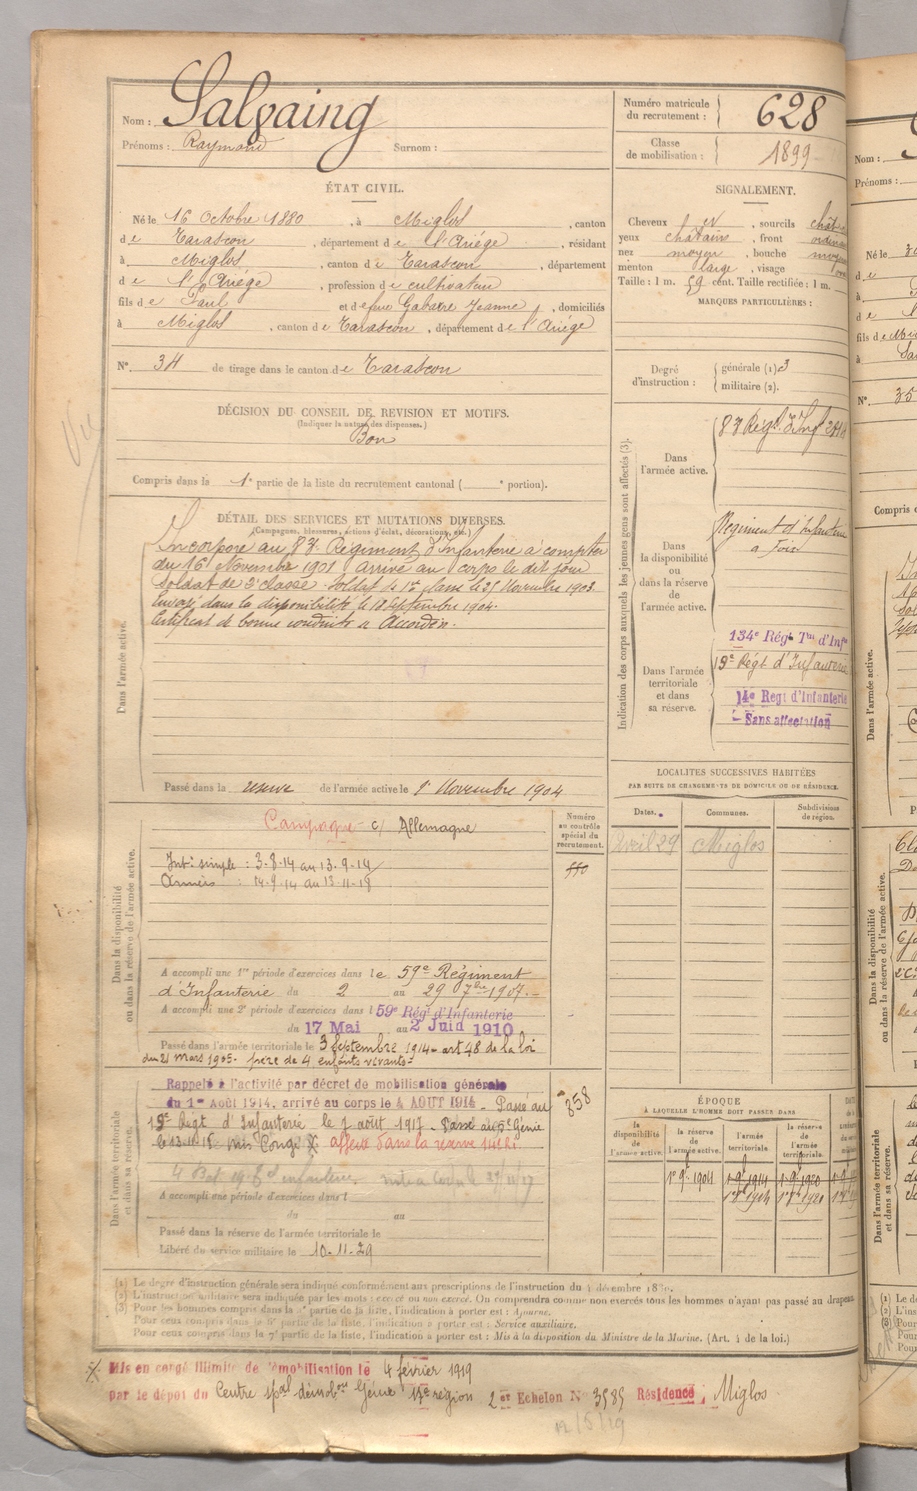 Nom : Salvaing
Prénoms : Raymond Surnom :
Numéro matricule du recrutement : 628
Classe de mobilisation : 1899
ÉTAT CIVIL.
Né le 16 Octobre 1880, à Miglos, canton
de Tarascon, département de l'Ariége, résidant
à Miglos, canton de Tarascon, département
de l'Ariége, profession de cultivateur
fils de Paul et de feue Gabarre Jeanne, domiciliés
à Miglos, canton de Tarascon, département de l'Ariége
N° 34 de tirage dans le canton de Tarascon
DÉCISION DU CONSEIL DE REVISION ET MOTIFS.
(Indiquer la nature des dispenses.)
Bon
Compris dans la 1e partie de la liste du recrutement cantonal ( e portion).
SIGNALEMENT.
Cheveux , sourcils
yeux châtains, front
nez moyen, bouche
menton large, visage
Taille : 1 m. 59 cent. Taille rectifiée : 1 m.
MARQUES PARTICULIÈRES :
Degré d'instruction : générale (1) 3
militaire (2).
DÉTAIL DES SERVICES ET MUTATIONS DIVERSES.
(Campagnes, blessures, actions d'éclat, décorations, etc.)
Dans l'armée active.
Incorporé au 83e Régiment d'Infanterie à compter
du 16 Novembre 1901 arrivé au corps le dit jour
Soldat de 2e classe. Soldat de 1re classe le 25 Novembre 1903.
Envoyé dans la disponibilité le 18 Septembre 1904.
Certificat de bonne conduite "Accordé".
Passé dans la réserve de l'armée active le 1er Novembre 1904
Indication des corps auxquels les jeunes gens sont affectés (3).
Dans l'armée active.
83 Régt d'Inf
Dans la disponibilité ou dans la réserve de l'armée active.
Régiment d'Infanterie
à Foix
Dans l'armée territoriale et dans sa réserve.
134e Régt Tal d'Inf
19e Régt d'Infanterie
14e Regt d'Infanterie
Sans affectation
LOCALITÉS SUCCESSIVES HABITÉES
PAR SUITE DE CHANGEMENTS DE DOMICILE OU DE RÉSIDENCE.
Dates. Communes. Subdivisions de région.
Avril 29 Miglos
Dans la disponibilité ou dans la réserve de l'armée active.
Numéro au contrôle spécial du recrutement.
Campagne c/ Allemagne
Int. simple : 3.8.14 au 13.9.14
Armées : 14.9.14 au 13.11.18
A accompli une 1re période d'exercices dans le 59e Régiment
d'Infanterie du 2 au 29 7bre 1907.
A accompli une 2e période d'exercices dans l 59e Régt d'Infanterie
du 17 Mai au 2 Juin 1910
Passé dans l'armée territoriale le 3 Septembre 1914 art 48 de la loi
du 21 mars 1905. père de 4 enfants vivants
Dans l'armée territoriale et dans sa réserve.
Rappelé à l'activité par décret de mobilisation générale
du 1er Août 1914, arrivé au corps le 4 AOUT 1914. Passé au
19e Régt d'Infanterie le 1 août 1917. Passé au Génie
affecté dans la réserve
858
A accompli une période d'exercices dans l
du au
Passé dans la réserve de l'armée territoriale le
Libéré du service militaire le 10-11-29
ÉPOQUE
À LAQUELLE L'HOMME DOIT PASSER DANS
la disponibilité de l'armée active. la réserve de l'armée active. l'armée territoriale. la réserve de l'armée territoriale.
(1) Le degré d'instruction générale sera indiqué conformément aux prescriptions de l'instruction du 4 décembre 18
(2) L'instruction militaire sera indiquée par les mots : exercé ou non exercé. On comprendra comme non exercés tous les hommes n'ayant pas passé au drapeau
(3) Pour les hommes compris dans la 4e partie de la liste, l'indication à porter est : Ajourné.
Pour ceux compris dans la 5e partie de la liste, l'indication à porter est : Service auxiliaire.
Pour ceux compris dans la 7e partie de la liste, l'indication à porter est : Mis à la disposition du Ministre de la Marine. (Art. 4 de la loi.)
Mis en congé illimité de démobilisation le 4 février 1919
par le dépot du Centre spal démobon Génie 17e région 2er Echelon N° 3585 Résidence : Miglos
12/5/29